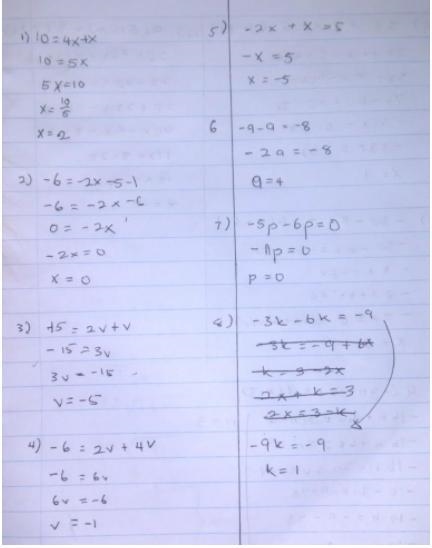 1) 10 = 4x+x
10 = 5x
5x=10
x= 10/5
x=2
2) -6 = -2x-5-1
-6 = -2x-6
0 = -2x
-2x=0
x=0
3) -15 = 2v+v
-15 = 3v
3v = -15
v=-5
4) -6 = 2v+4v
-6 = 6v
6v = -6
v = -1
5) -2x + x = 5
-x = 5
x = -5
6 -a-a = -8
-2a = -8
a=4
7) -5p-6p=0
-11p=0
p=0
8) -3k-6k = -9
-3k = -9 + 6x
2x + k = 3
2x = 3-k
-9k = -9
k=1